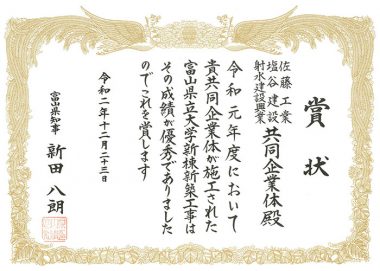 賞状
佐藤工業
塩谷建設
射水建設興業
共同企業体殿
令和元年度において
貴共同企業体が施工された
富山県立大学新棟新築工事は
その成績が優秀でありました
のでこれを賞します
令和二年十二月二十三日
富山県知事 新田八朗